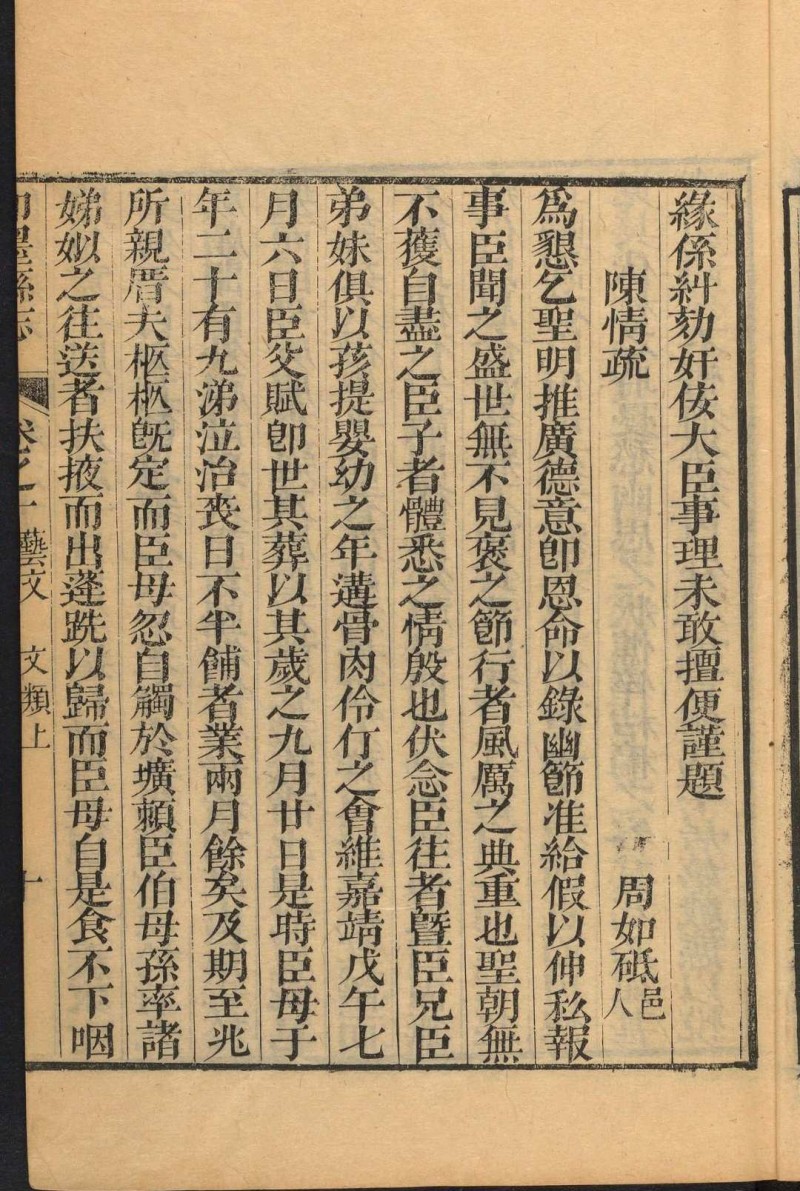 緣係糾劾奸佞大臣事理未敢擅便謹題
陳情疏 周如砥邑人
爲懇乞聖明推廣德意卽恩命以錄幽節准給假以伸私報
事臣聞之盛世無不見褒之節行者風厲之典重也聖朝無
不獲自盡之臣子者體悉之情殷也伏念臣往者曁臣兄臣
弟妹俱以孩提嬰幼之年遘骨肉伶仃之會維嘉靖戊午七
月六日臣父賦卽世其葬以其歲之九月廿日是時臣母于
年二十有九涕泣治喪日不半餔者業兩月餘矣及期至兆
所親厝夫柩柩旣定而臣母忽自觸於壙賴臣伯母孫率諸
娣姒之往送者扶掖而出蓬跣以歸而臣母自是食不下咽
卽墨縣志 卷之十 藝文 文類上 十